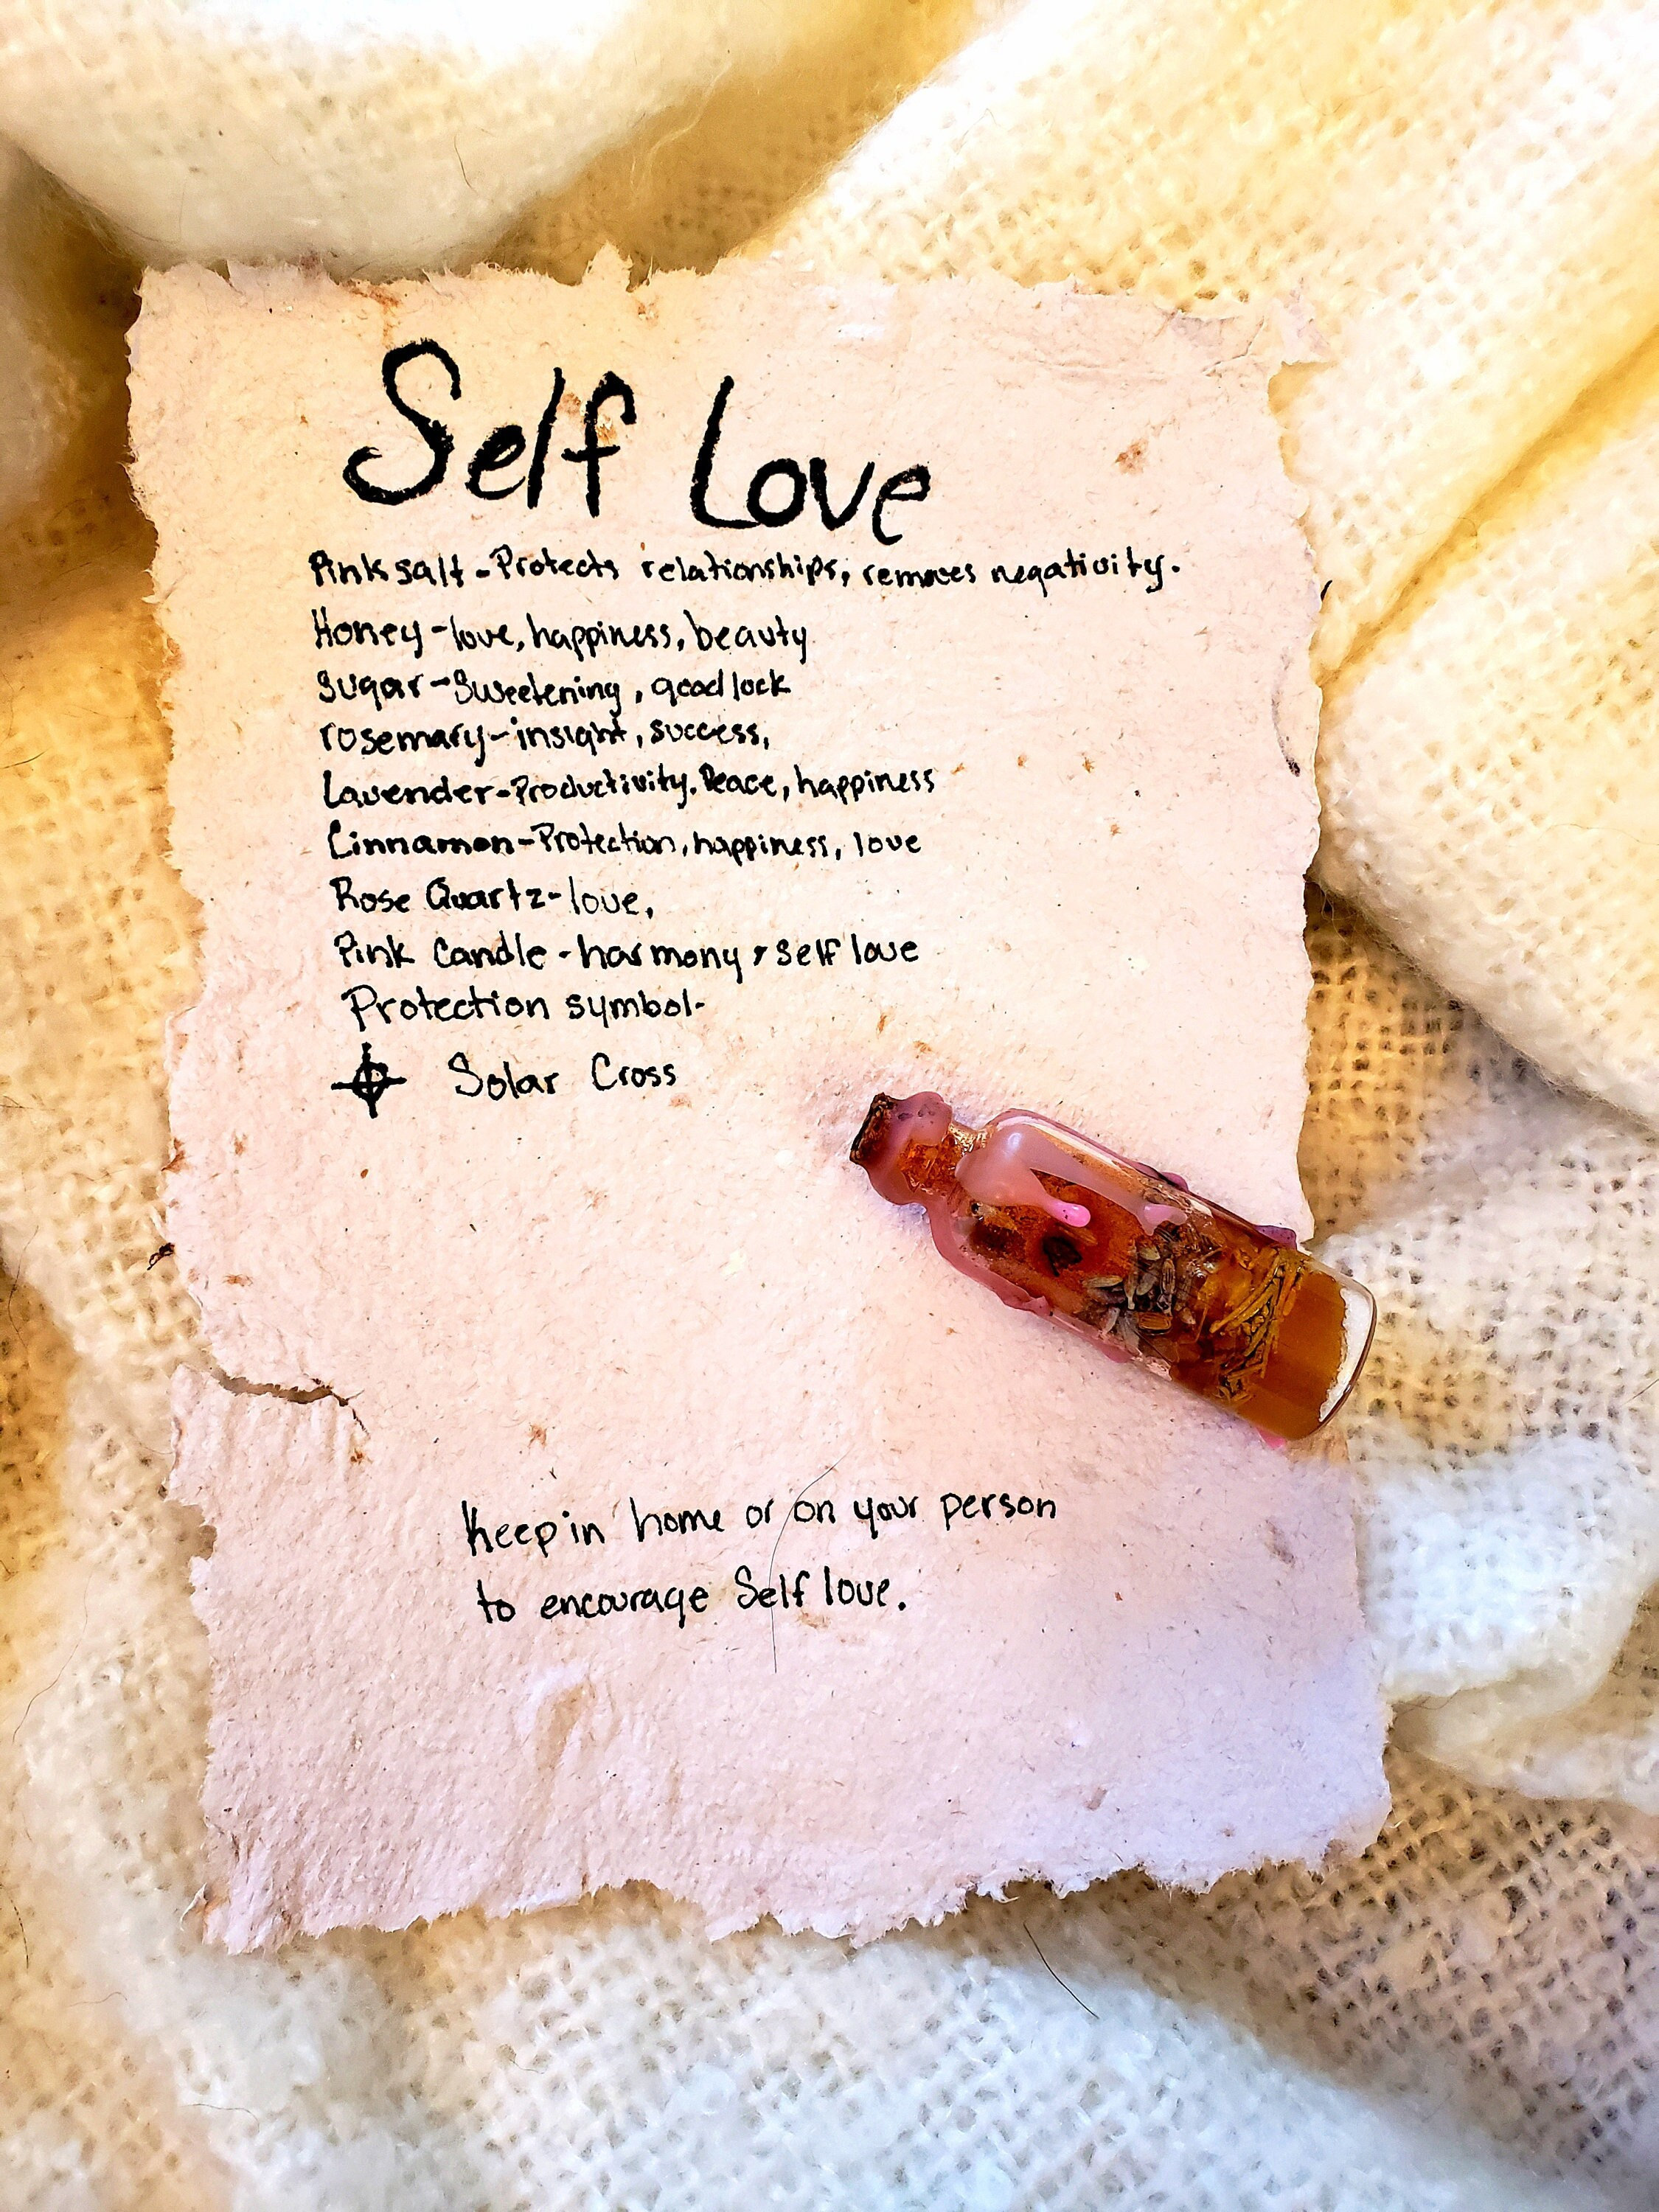 Self Love
Pink salt - Protects relationships, removes negativity.
Honey - love, happiness, beauty
Sugar - Sweetening, good luck
rosemary - insight, success,
Lavender - Productivity. Peace, happiness
Cinnamon - Protection, happiness, love
Rose Quartz - love,
Pink Candle - harmony, self love
Protection symbol-
Solar Cross
Keep in home or on your person
to encourage Self love.